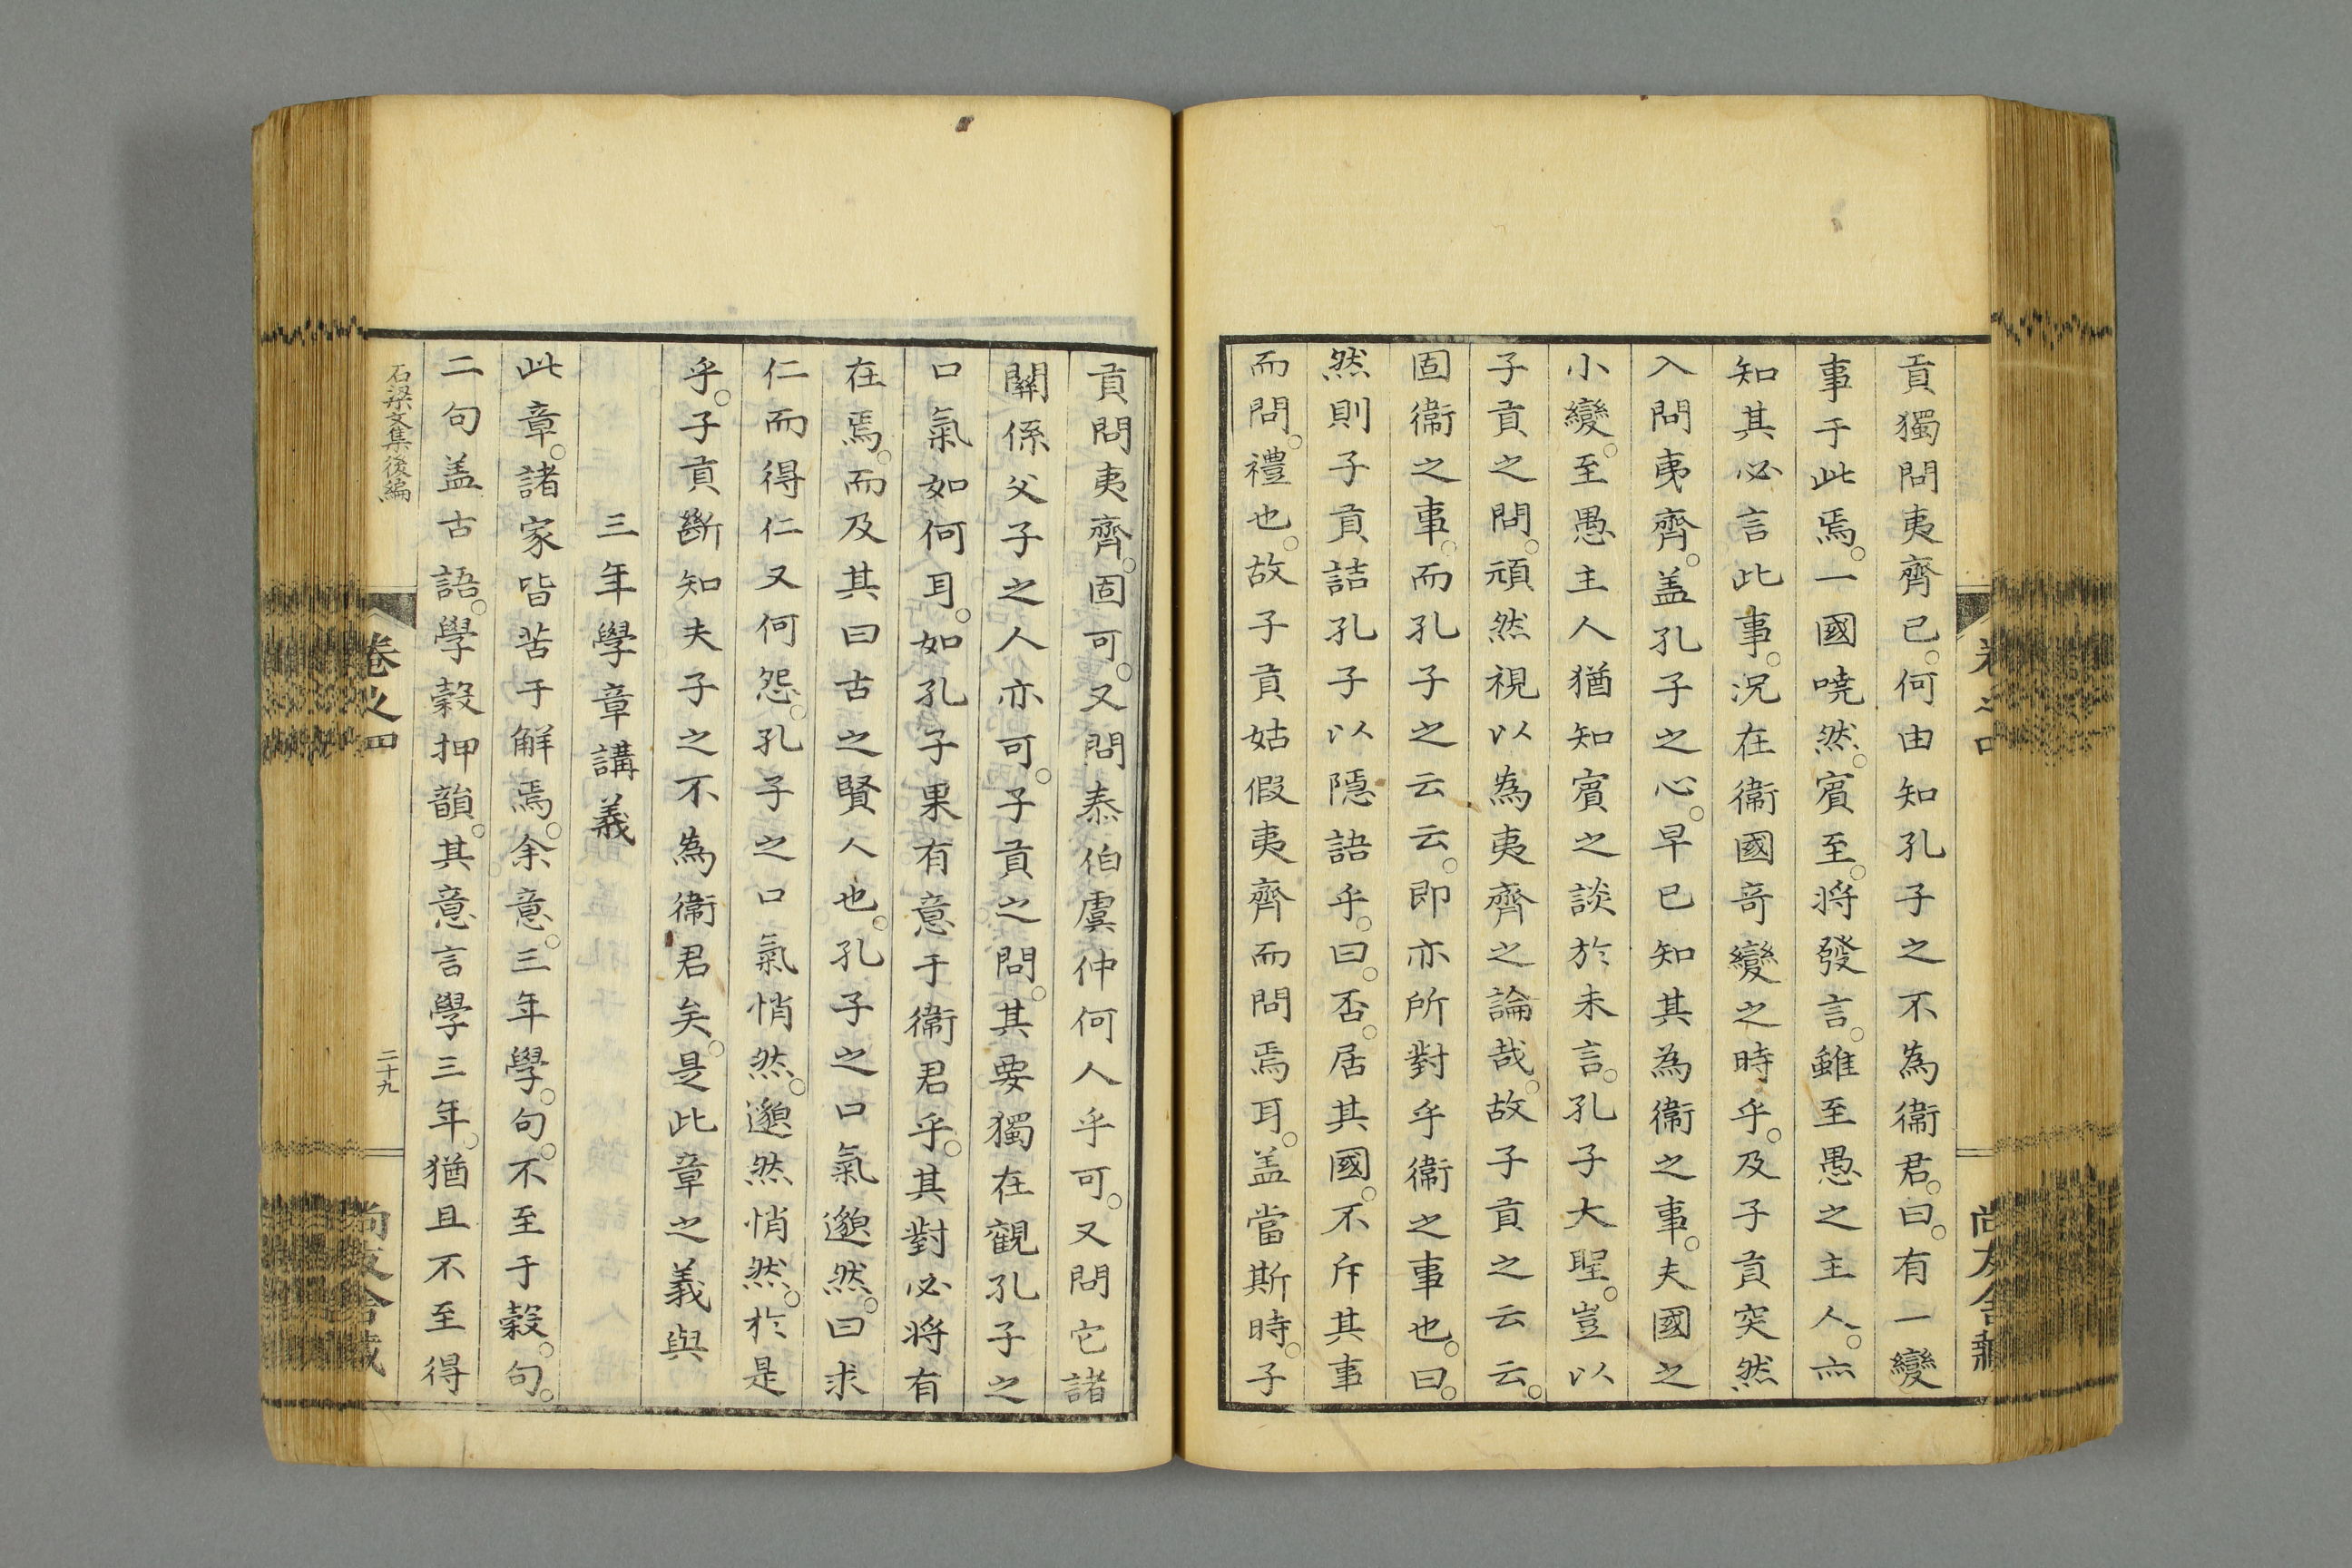 貢獨問夷齊已。何由知孔子之不為衞君。曰。有一變
事于此焉。一國哓然。賓至。将發言。雖至愚之主人。亦
知其必言此事。况在衞國奇變之時乎。及子貢突然
入問夷齊。盖孔子之心。早已知其為衞之事。夫國之
小變。至愚主人猶知賓之談於未言。孔子大聖。豈以
子貢之問。頑然視以為夷齊之論哉。故子貢之云云。
固衞之事。而孔子之云云。即亦所對乎衞之事也。曰。
然則子貢詰孔子以隱語乎。曰。否。居其國。不斥其事
而問。禮也。故子貢姑假夷齊而問焉耳。盖當斯時。子
貢問夷齊。固可。又問泰伯虞仲何人乎可。又問它諸
關係父子之人亦可。子貢之問。其要獨在觀孔子之
口氣如何耳。如孔子果有意于衞君乎。其對必将有
在焉。而及其曰古之賢人也。孔子之口氣邈然。曰求
仁而得仁又何怨。孔子之口氣悄然。邈然悄然。於是
乎。子貢斷知夫子之不為衞君矣。是此章之義與
三年學章講義
此章。諸家皆苦于解焉。余意。三年學。句。不至于穀。句。
二句盖古語。學穀押韻。其意言學三年。猶且不至得
石梁文集後編
卷之四
二十九
尚友舍藏